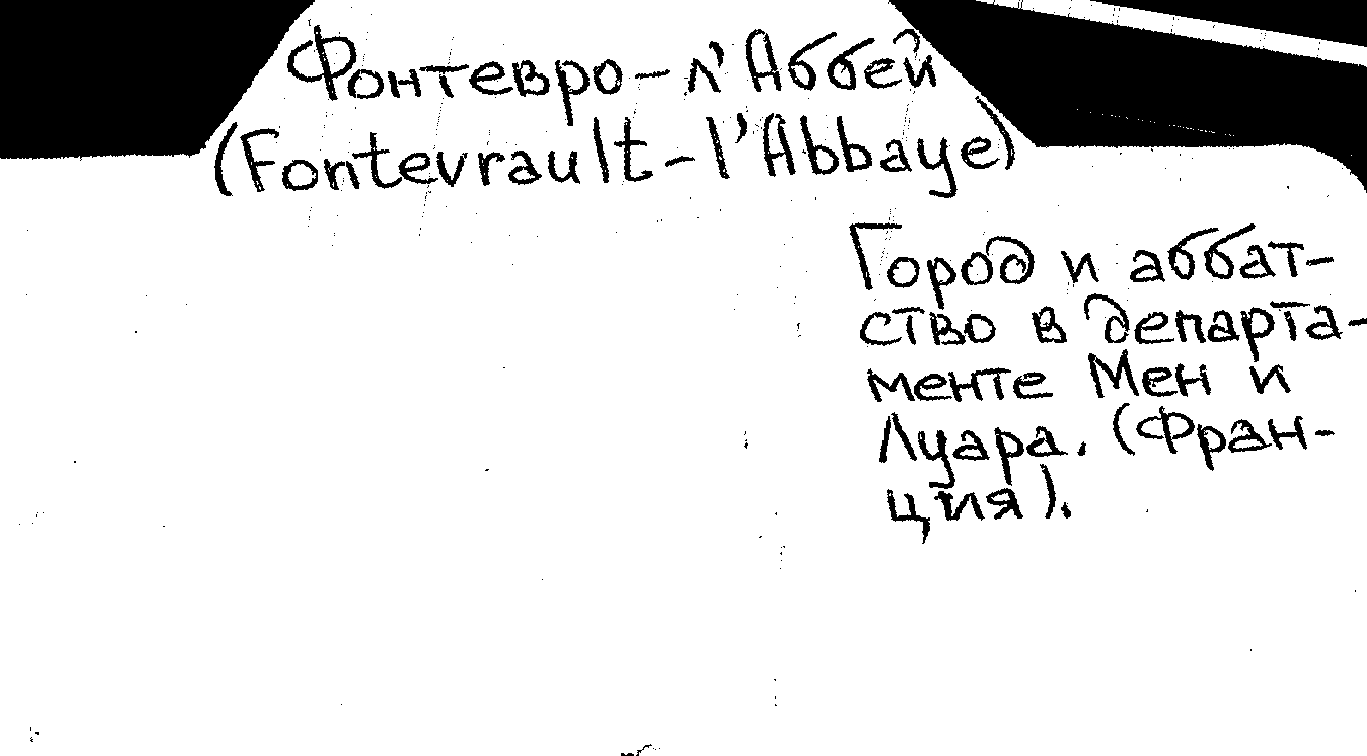 Фонтевро-л'Аббей
(Fontevrault-l'Abbaye)
Город и аббат-
ство в департа-
менте Мен и
Луара. (Фран-
ция).